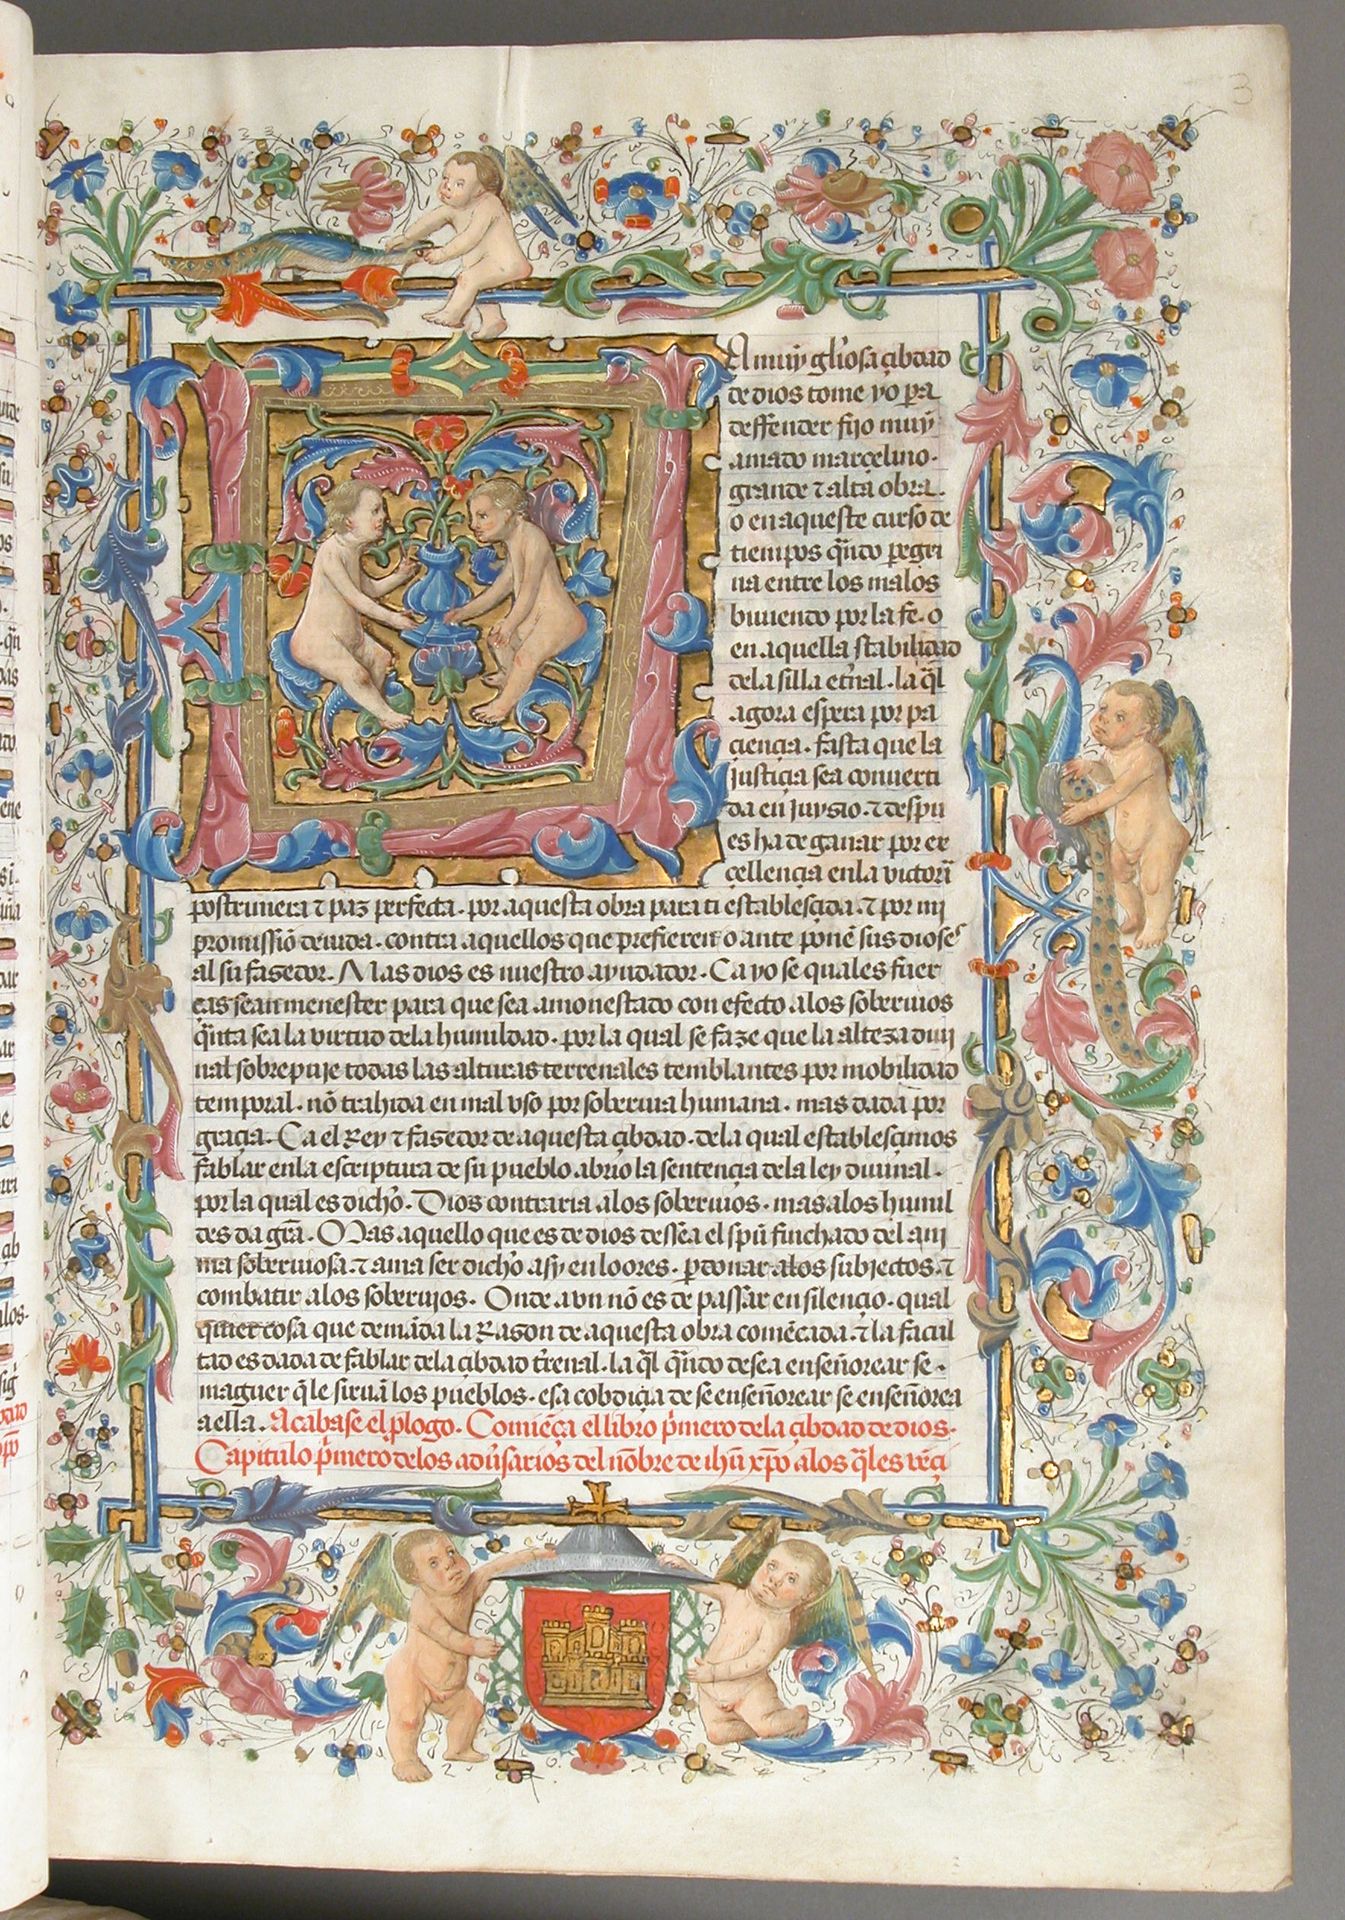 3
LA muy gl'iosa çibdad
de dios tome yo pa
deffender fijo muy
amado marçelino.
grande ⁊ alta obra.
o en aqueste curso de
tiempos q̃ndo pegri
na entre los malos
biuiendo por la fe. o
en aquella stabilidad
dela silla et̃nal. la q̃l
agora espera por pa
çiençia. fasta que la
justiçia sea conuerti
da en juyzio. ⁊ despu
es ha de ganar por ex
çellençia enla victori̅
postrimera ⁊ paz perfecta. por aquesta obra para ti establesçida. ⁊ por mi
promissiõ deuida. contra aquellos que prefieren o ante ponẽ sus dioses
al su fazedor. Mas dios es nuestro ayudador. Ca yo se quales fuer
ças sean menester para que sea amonestado con efecto alos soberuios
q̃nta sea la virtud dela humildad. por la qual se faze que la alteza diui
nal sobrepuje todas las alturas terrenales temblantes por mobilidad
temporal. nõ trahida en mal vso por soberuia humana. mas dada por
graçia. Ca el Rey ⁊ fazedor de aquesta çibdad. dela qual establesçimos
fablar enla escriptura de su pueblo abrio la sentençia dela ley diuinal.
por la qual es dicho. Dios contraria alos soberuios. mas alos humil
des da gr̃a. Mas aquello que es de dios dessea el spũ finchado del ani
ma soberuiosa. ⁊ ama ser dicho asy en loores. pdonar alos subiectos. ⁊
combatir alos soberuios. Onde avn nõ es de passar en silençio. qual
quier cosa que demãda la Razon de aquesta obra comẽcada. ⁊ la facul
tad es dada de fablar dela çibdad t̃renal. la q̃l q̃ndo desea enseñorear se.
maguer q̃le siruã los pueblos. esa cobdiçia de se enseñorear se enseñorea
a ella. Acabase el plogo. Comiẽça el libro p̃mero dela çibdad de dios.
Capitulo p̃mero delos adũsarios del nõbre de ihũ xp̃o alos q̃les vẽçi